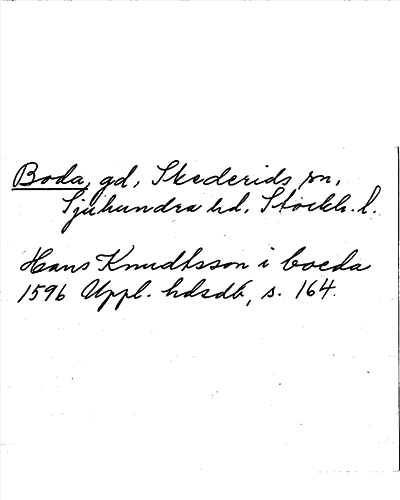 Boda, gd, Skederids sn,
Sjuhundra hd, Stockh. l.
Hans Knudtsson i boeda
1596 Uppl. hdsdb, s. 164.